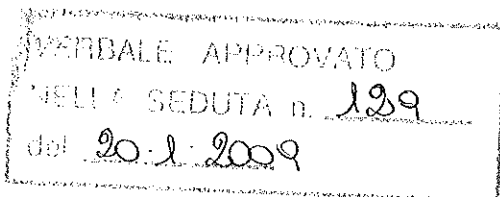 VERBALE APPROVATO
NELLA SEDUTA n. 129
del 20.1.2009